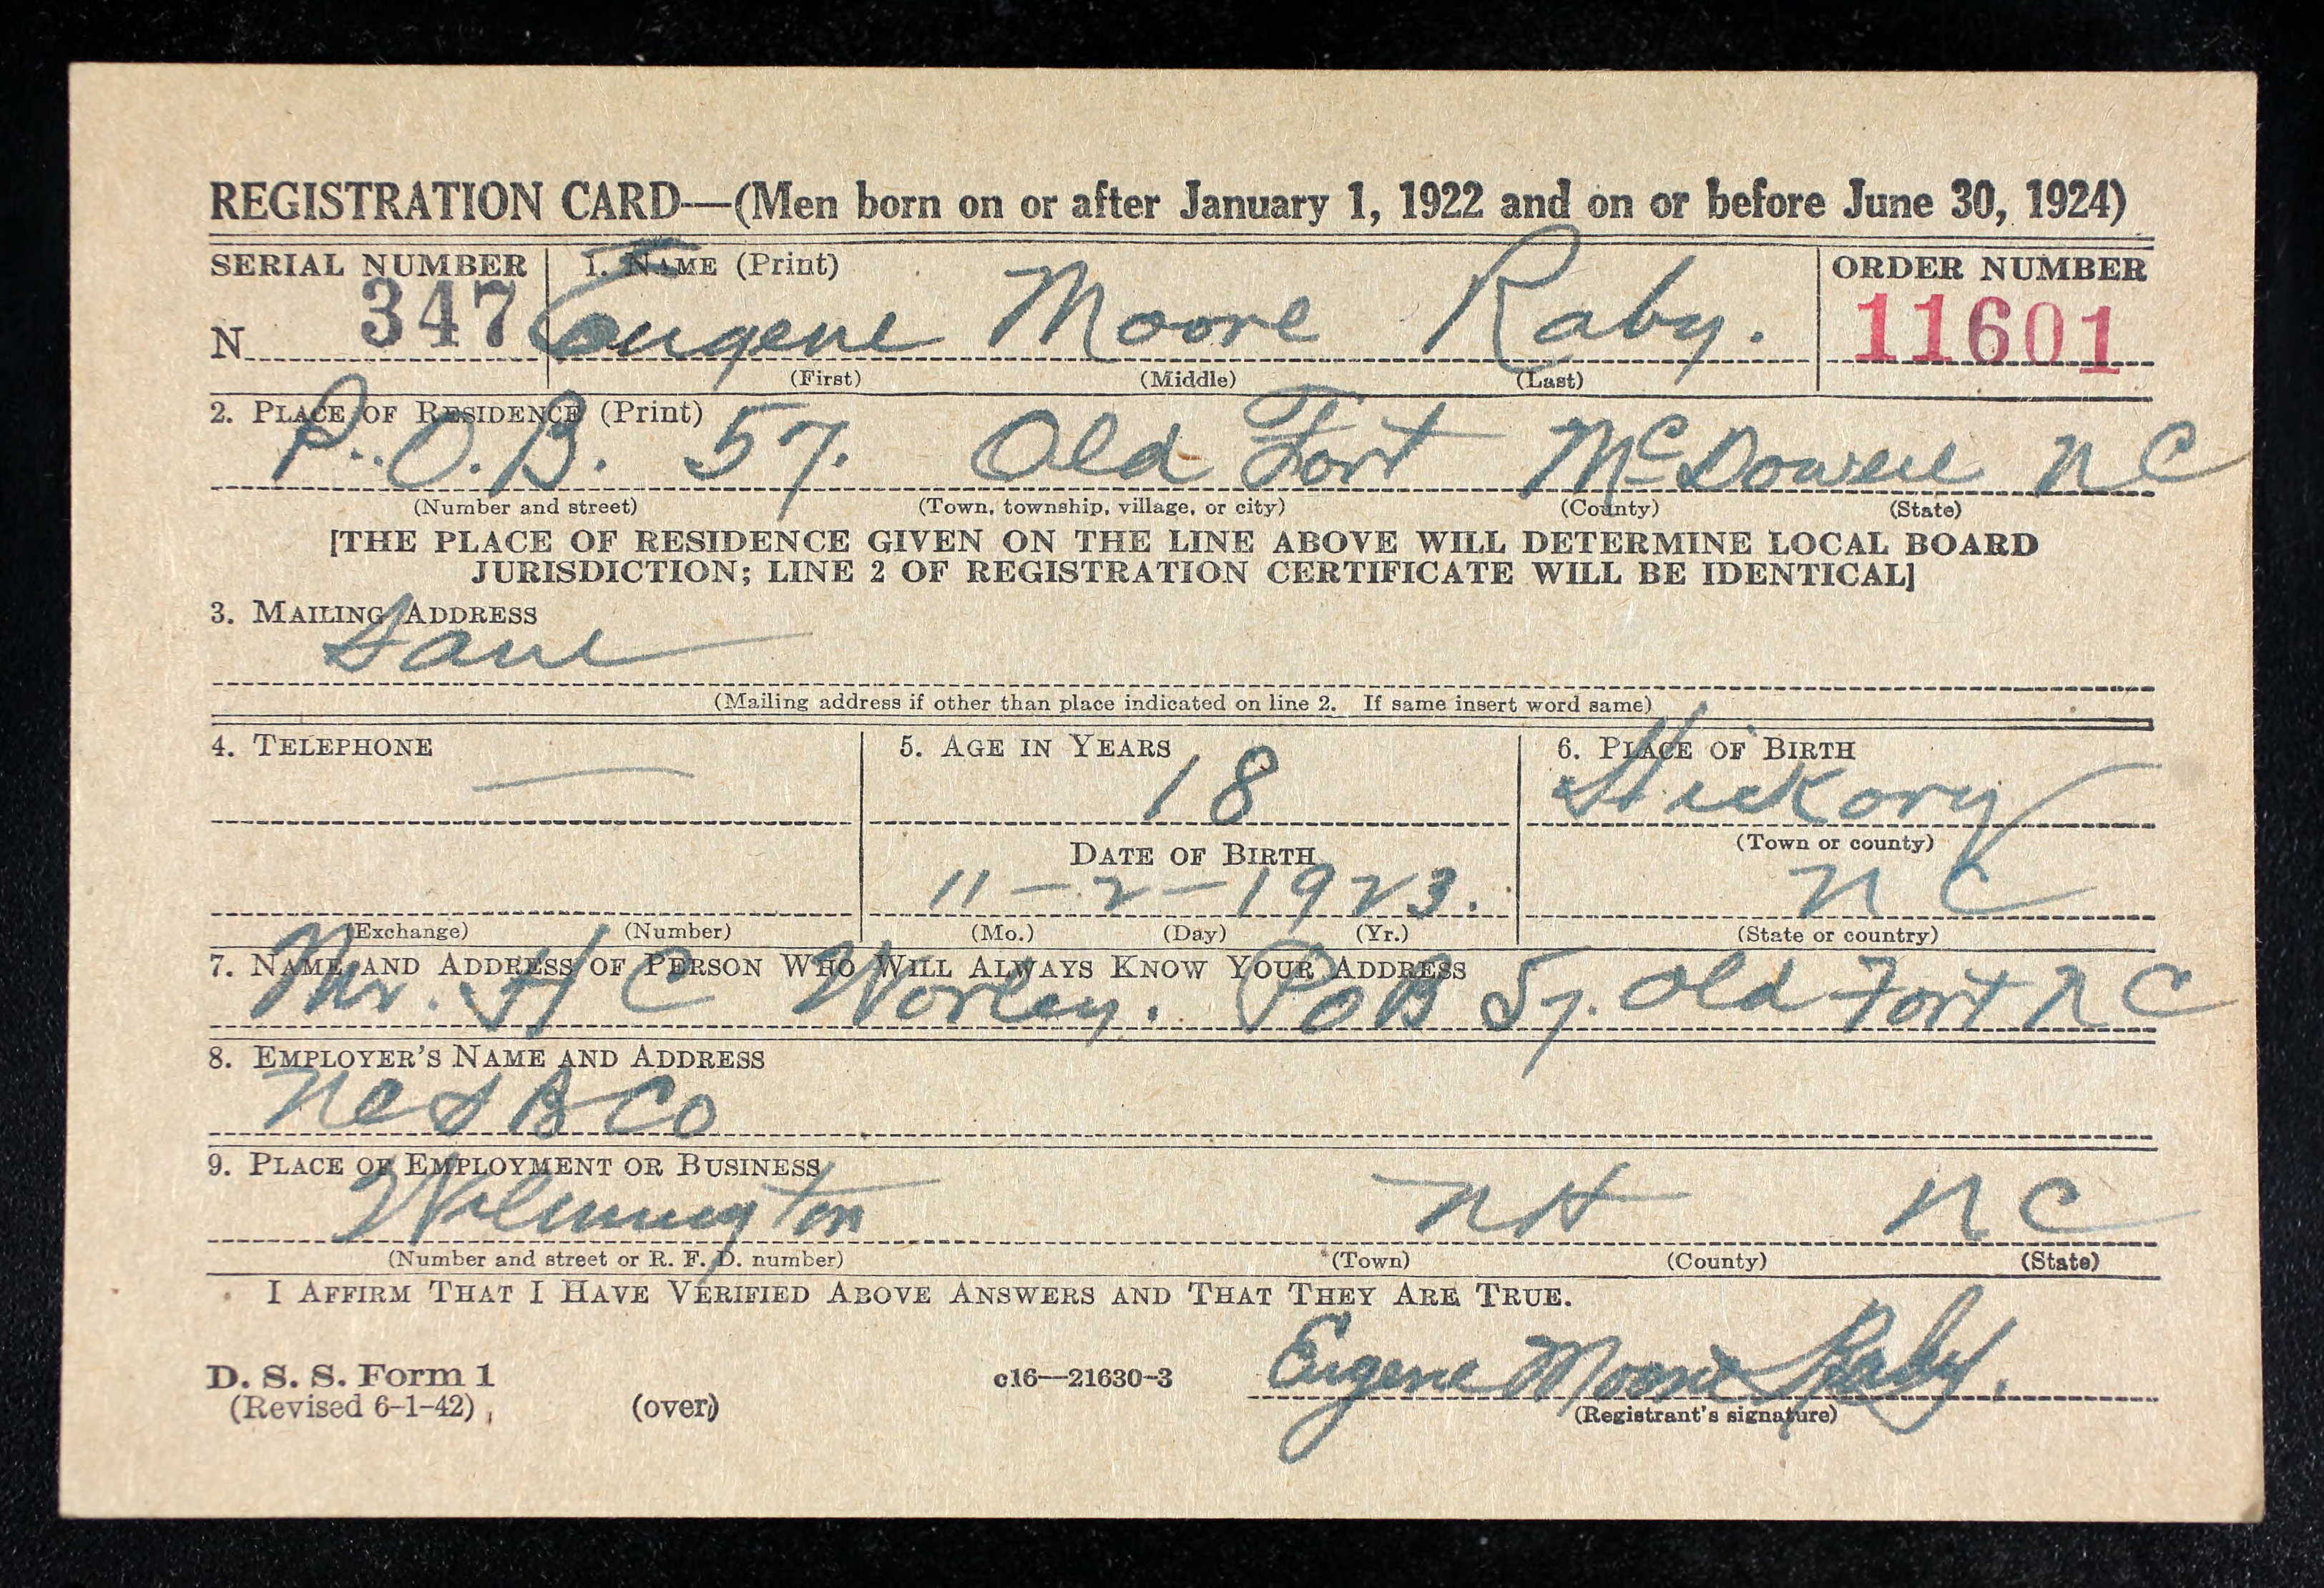 REGISTRATION CARD—(Men born on or after January 1, 1922 and on or before June 30, 1924)
SERIAL NUMBER 1. NAME (Print) ORDER NUMBER
N 347 Eugene Moore Raby. 11601
(First) (Middle) (Last)
2. PLACE OF RESIDENCE (Print)
P.O.B. 57. Old Fort McDowell NC
(Number and street) (Town, township, village, or city) (County) (State)
[THE PLACE OF RESIDENCE GIVEN ON THE LINE ABOVE WILL DETERMINE LOCAL BOARD
JURISDICTION; LINE 2 OF REGISTRATION CERTIFICATE WILL BE IDENTICAL]
3. MAILING ADDRESS
Same
(Mailing address if other than place indicated on line 2. If same insert word same)
4. TELEPHONE 5. AGE IN YEARS 6. PLACE OF BIRTH
— 18 Hickory
(Town or county)
DATE OF BIRTH
11-2-1923. NC
(Exchange) (Number) (Mo.) (Day) (Yr.) (State or country)
7. NAME AND ADDRESS OF PERSON WHO WILL ALWAYS KNOW YOUR ADDRESS
Mr. H C Worley. POB 57. Old Fort NC
8. EMPLOYER'S NAME AND ADDRESS
B Co
9. PLACE OF EMPLOYMENT OR BUSINESS
Wilmington NH NC
(Number and street or R. F. D. number) (Town) (County) (State)
I AFFIRM THAT I HAVE VERIFIED ABOVE ANSWERS AND THAT THEY ARE TRUE.
Eugene Moore Raby.
D. S. S. Form 1 c16—21630-3
(Revised 6-1-42) (over) (Registrant's signature)